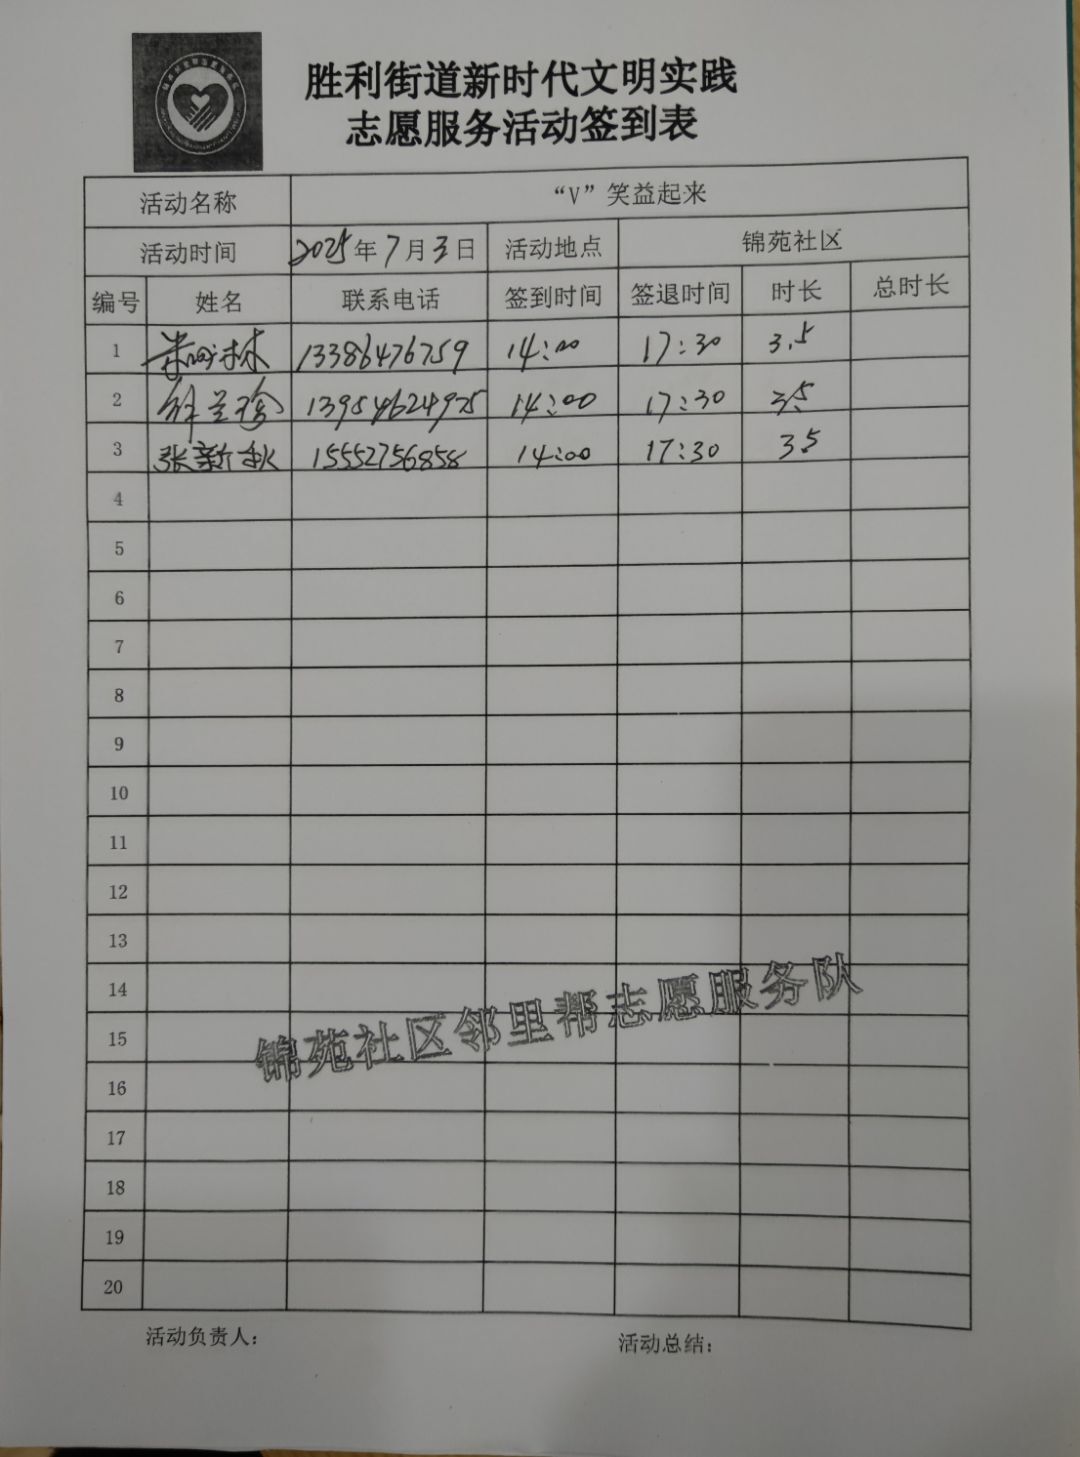 胜利街道新时代文明实践
志愿服务活动签到表
活动名称 “V”笑益起来
活动时间 2025年7月3日 活动地点 锦苑社区
编号 姓名 联系电话 签到时间 签退时间 时长 总时长
1 13386476759 14:00 17:30 3.5
2 13954624975 14:00 17:30 3.5
3 张新秋 15552756858 14:00 17:30 3.5
4
5
6
7
8
9
10
11
12
13
14
15
16
17
18
19
20
锦苑社区邻里帮志愿服务队
活动负责人： 活动总结：